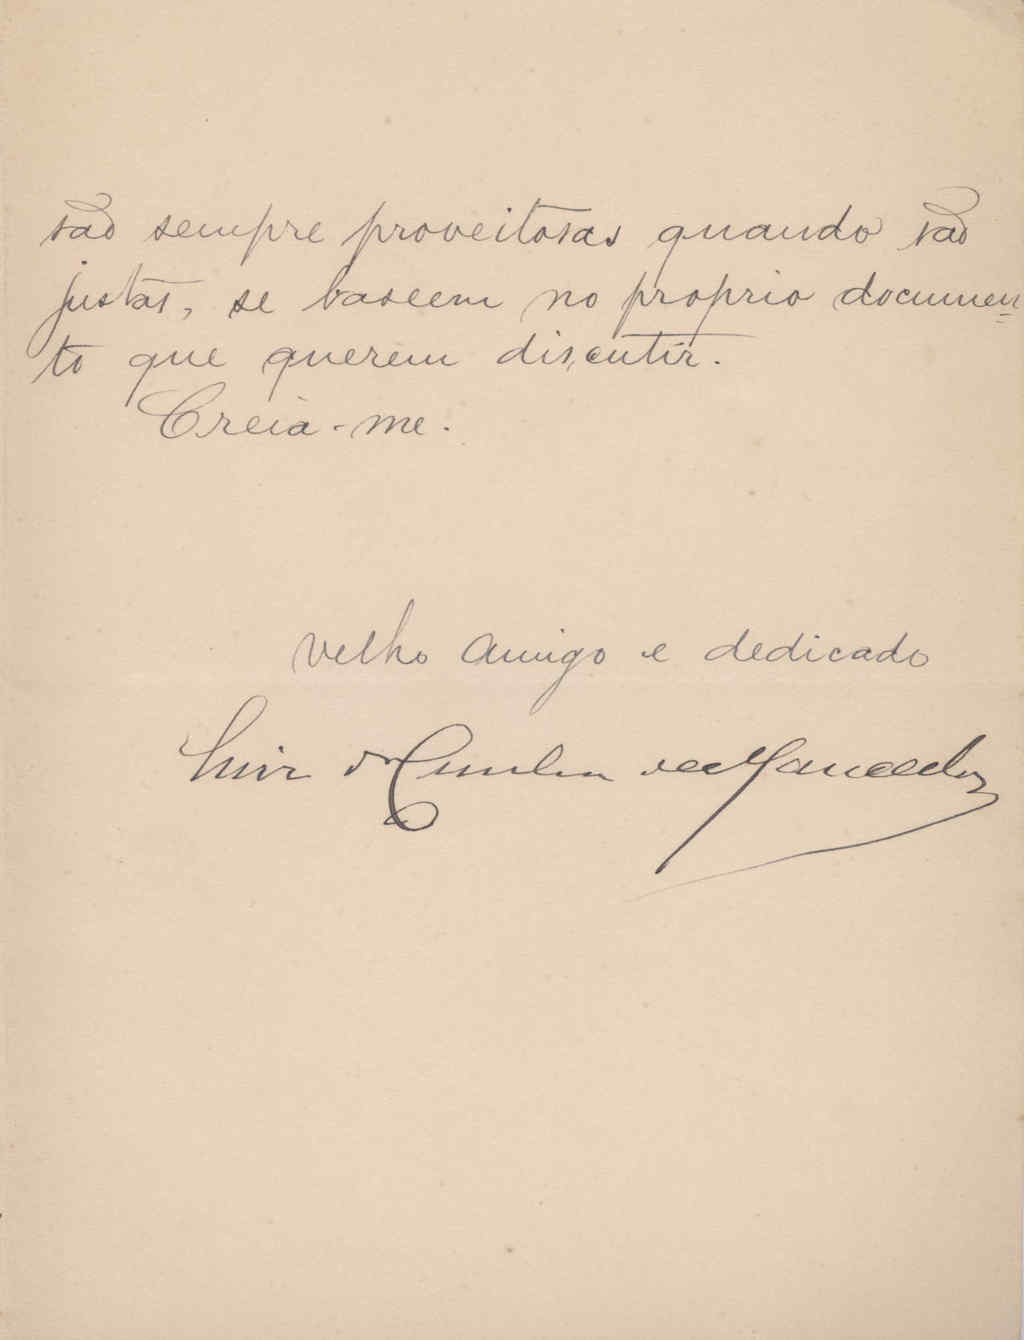 são sempre proveitosas quando são
justas, se baseem no proprio documen=
to que querem discutir.
Creia-me.
velho amigo e dedicado
Luiz da Cunha de Mancellos